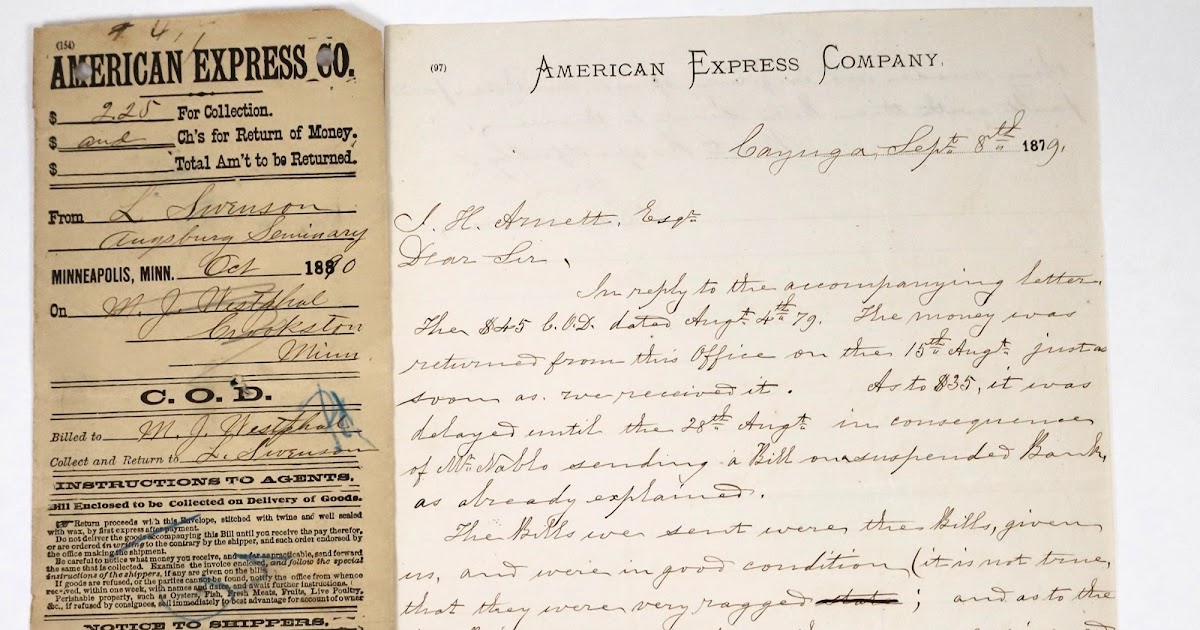 (154)
AMERICAN EXPRESS CO.
$ 2.25 For Collection.
$ and Ch's for Return of Money.
$ Total Am't to be Returned.
From L. Swenson
Augsburg Seminary
MINNEAPOLIS, MINN. Oct 1890
On M. J. Westphal
Crookston
Minn
C. O. D.
Billed to M. J. Westphal
Collect and Return to L. Swenson
INSTRUCTIONS TO AGENTS.
Bill Enclosed to be Collected on Delivery of Goods.
Return proceeds with this Envelope, stitched with twine and well sealed
with wax, by first express after payment.
Do not deliver the goods accompanying this Bill until you receive the pay therefor,
or are ordered in writing to the contrary by the shipper, and such order endorsed by
the office making the shipment.
Be careful to notice what money you receive, and as far as practicable, send forward
the same that is collected. Examine the invoice enclosed, and follow the special
instructions of the shippers, if any are given on the bill.
If goods are refused, or the parties cannot be found, notify the office from whence
received, within one week, with names and dates, and await further instructions.
Perishable property, such as Oysters, Fish, Fresh Meats, Fruits, Live Poultry,
&c., if refused by consignees, sell immediately to best advantage for account of owner
NOTICE TO SHIPPERS.
(97)
AMERICAN EXPRESS COMPANY.
Cayuga, Sept. 8th 1879.
J. H. Arnett, Esqr.
Dear Sir,
In reply to the accompanying letter.
The $45 C.O.D. dated Augt. 4th 79. The money was
returned from this Office on the 15th Augt. just as
soon as we received it. As to $35, it was
delayed until the 28th Augt. in consequence
of Mr. Nablo sending a Bill on suspended Bank,
as already explained.
The Bills we sent were the Bills, given
us, and were in good condition (it is not true,
that they were very ragged ; and as to the